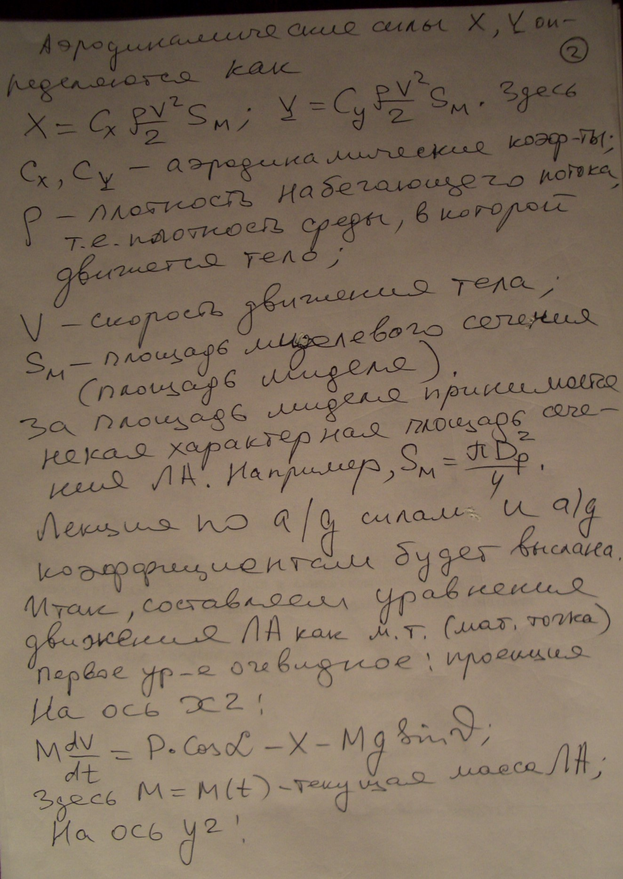 Аэродинамические силы X, Y оп-
②
ределяются как
X = Cx ρV²/2 Sм; Y = Cy ρV²/2 Sм. Здесь
Cx, Cy – аэродинамические коэф-ты;
ρ – плотность набегающего потока,
т.е. плотность среды, в которой
движется тело;
V – скорость движения тела;
Sм – площадь миделевого сечения
(площадь миделя).
За площадь миделя принимается
некая характерная площадь сече-
ния ЛА. Например, Sм = πDр²/4.
Лекция по а/д силам и а/д
коэффициентам будет выслана.
Итак, составляем уравнения
движения ЛА как м.т. (мат. точка)
первое ур-е очевидное: проекция
На ось x2:
M dV/dt = P·Cosα – X – Mg Sinϑ;
Здесь M = M(t) – текущая масса ЛА;
На ось y2: